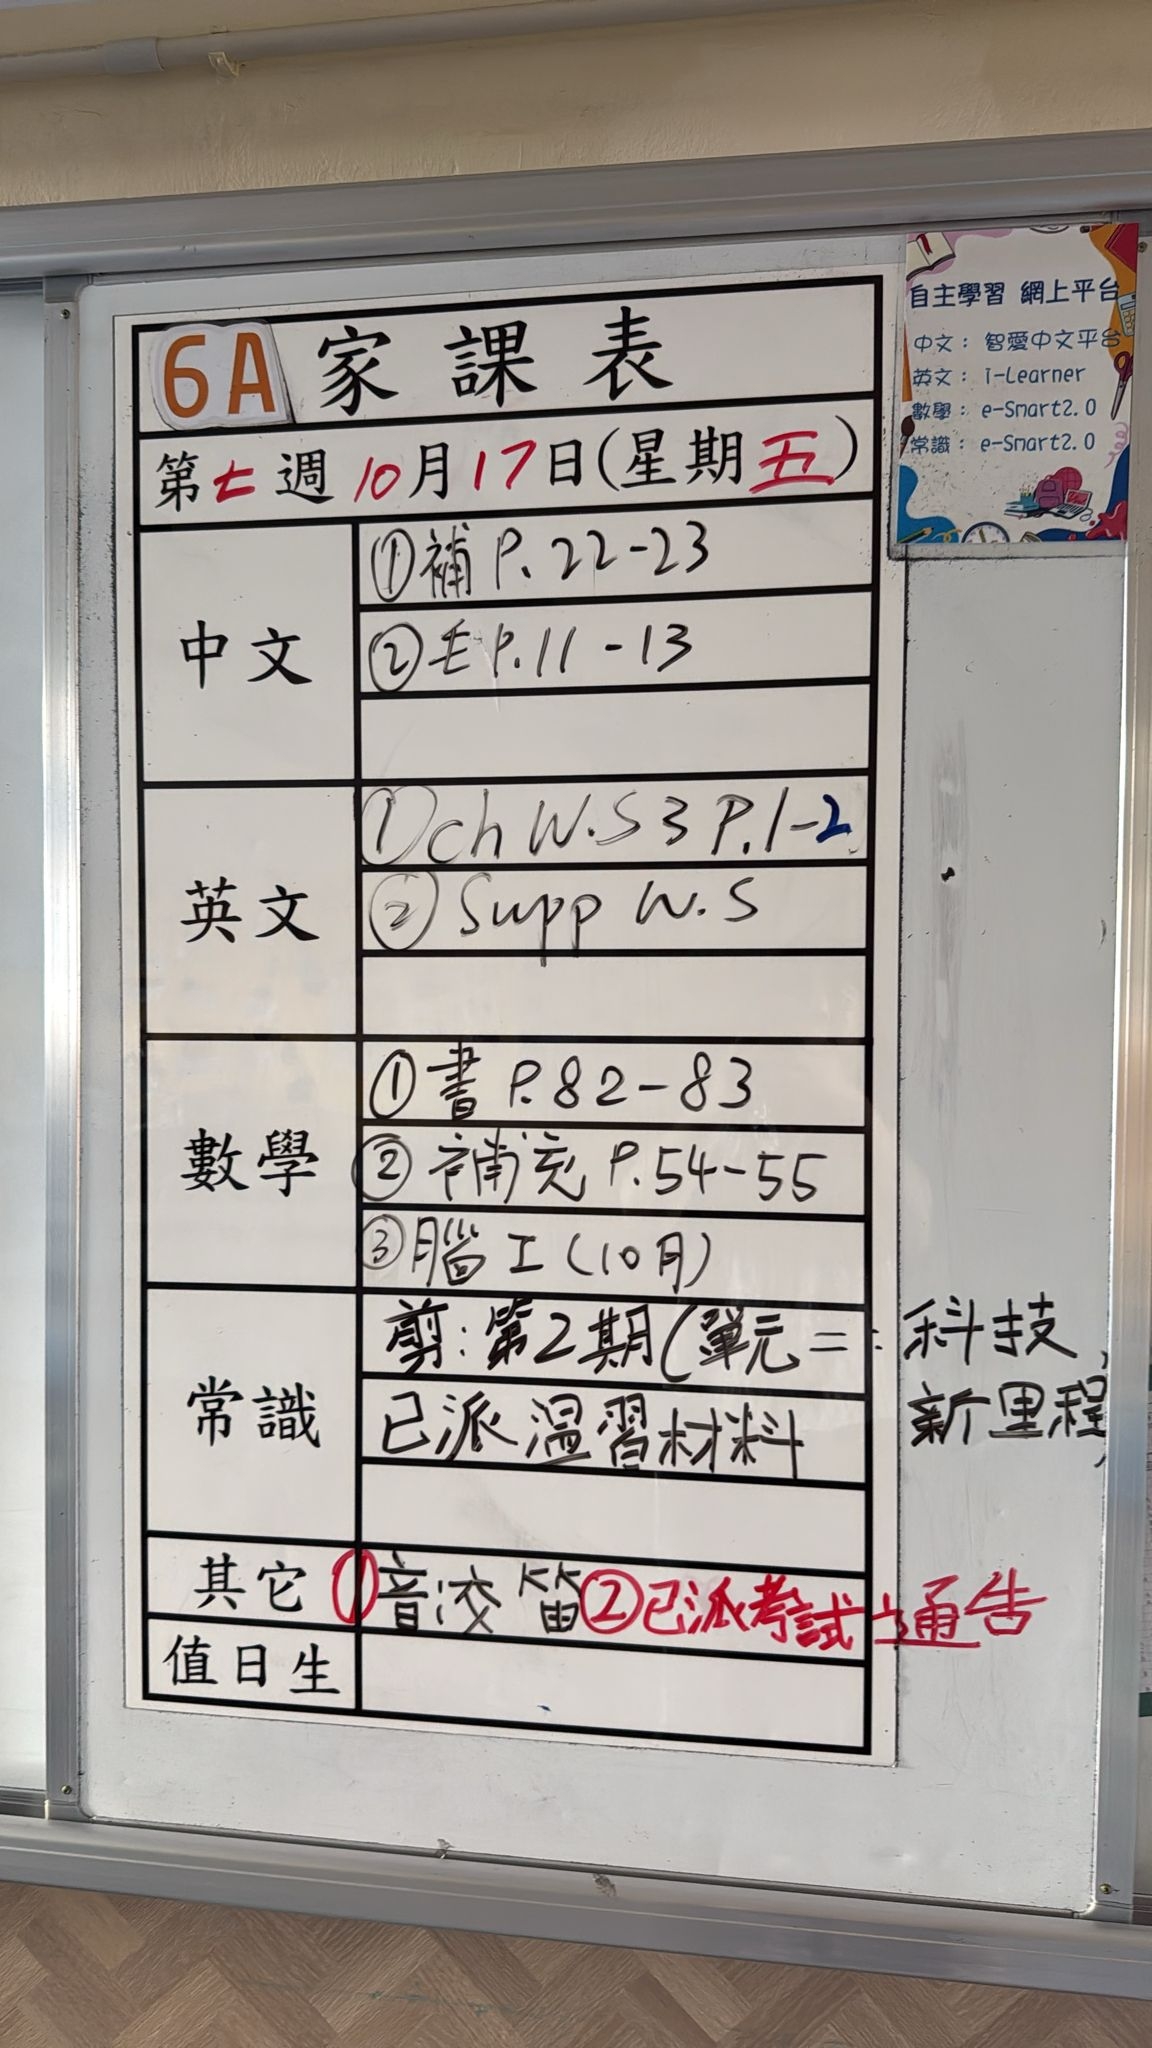 6A 家課表
第七週 10月17日(星期五)
中文
①補 P. 22-23
②毛 P. 11-13
英文
①ch W.S 3 P. 1-2
②Supp W.S
數學
①書 P. 82-83
②補充 P. 54-55
③腦工(10月)
常識
剪:第2期(單元二:科技新里程)
已派溫習材料
其它
①音交笛 ②已派考試通告
值日生
自主學習 網上平台
中文: 智愛中文平台
英文: i-Learner
數學: e-Smart2.0
常識: e-Smart2.0